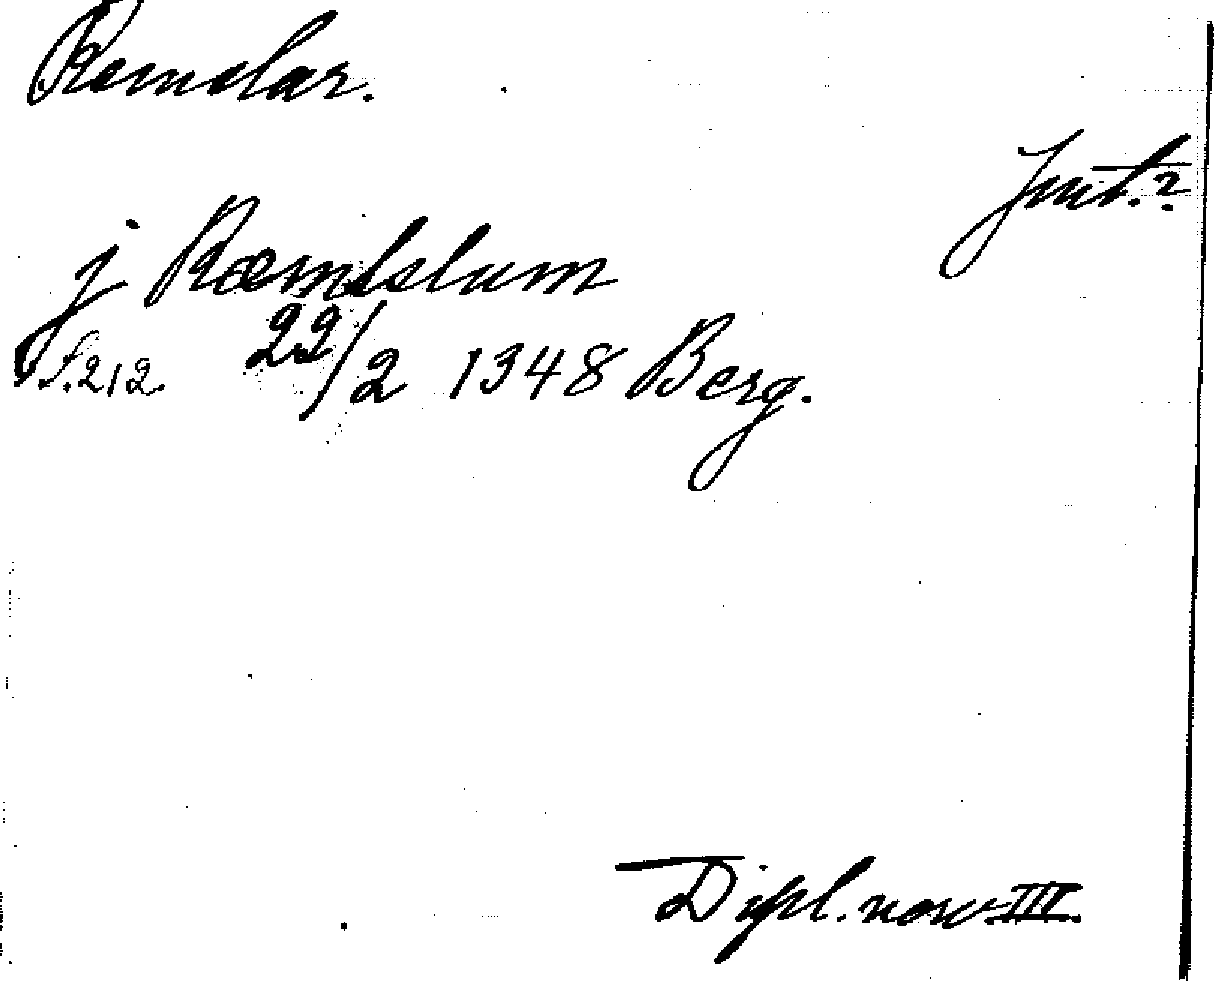 Remslar.
Jmt.?
j Ræmslum
S. 212. 22/2 1348 Berg.
Dipl. norv. III.